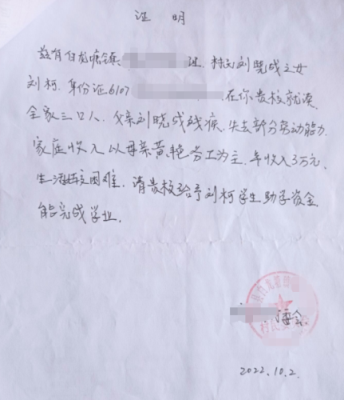 证明
兹有住龙塘镇 组，村民刘晓成之女
刘柯，身份证6107 在你贵校就读
全家三口人，父亲刘晓成残疾，失去部分劳动能力
家庭收入以母亲黄艳务工为主，年收入3万元，
生活比较困难，请贵校给予刘柯学生助学资金
能完成学业。
委会
2022.10.2.